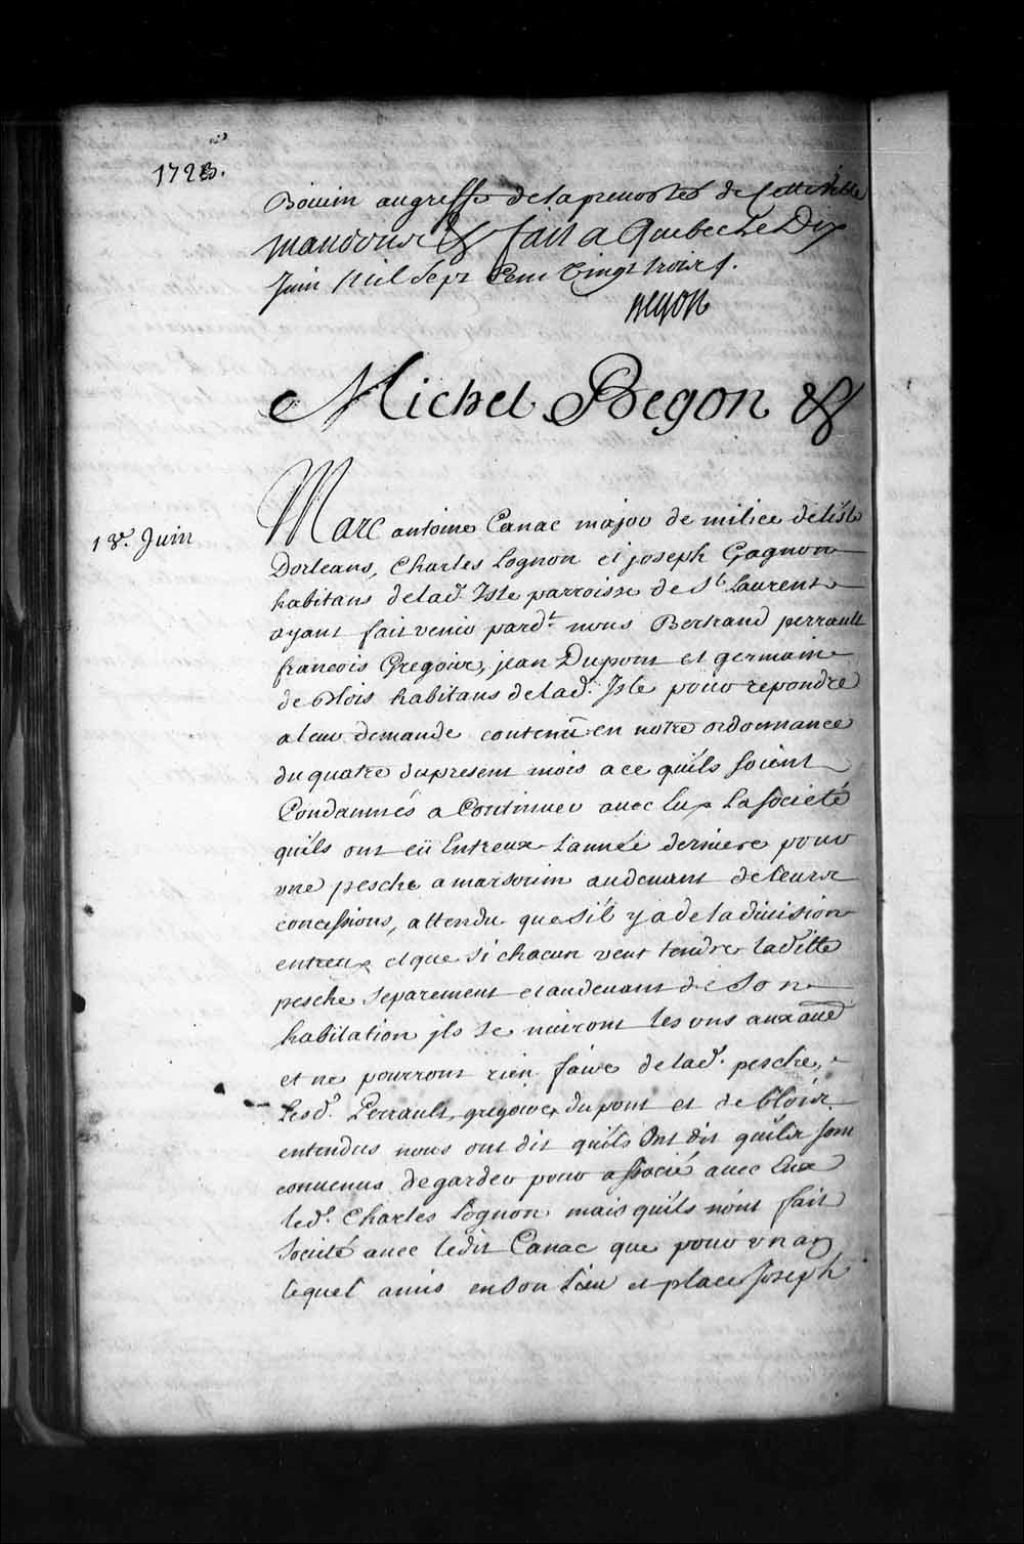 1723.
Boivin au greffe de la prevosté de cette ville
mandons &c fait a Quebec Le Dix
Juin Mil Sept Cent Vingt trois ∫.
Begon
Michel Begon &c
Marc antoine Canac major de milice de lisle
13e. Juin
Dorleans, Charles Lognon et joseph Gagnon
habitans de lad. Isle parroisse de St. Laurent
ayant fait venir pardt. nous Bertrand perrault
francois Gregoire, jean Dupont et germain
de Blois habitans de lad. Isle pour repondre
a leur demande contenüe en notre ordonnance
du quatre du present mois a ce quils soient
Condamnés a Continuer avec Eux La societé
quils ont eü Entreux Lannée derniere pour
une pesche a marsouin audevant de leurs
concessions, attendu que sil y a de la division
entreux et que si chacun veut tendre laditte
pesche separement et audevant de Son
habitation jls se nuiront les uns aux aued
et ne pourront rien faire de lad. pesche,
Lesd. Perrault, gregoire, dupont et de blois
entendus nous ont dit quils Ont dit quils sont
convenus de garder pour associé avec Eux
led. Charles Lognon mais quils nont fait
societé avec ledit Canac que pour un an
lequel a mis en son Lieu et place Joseph